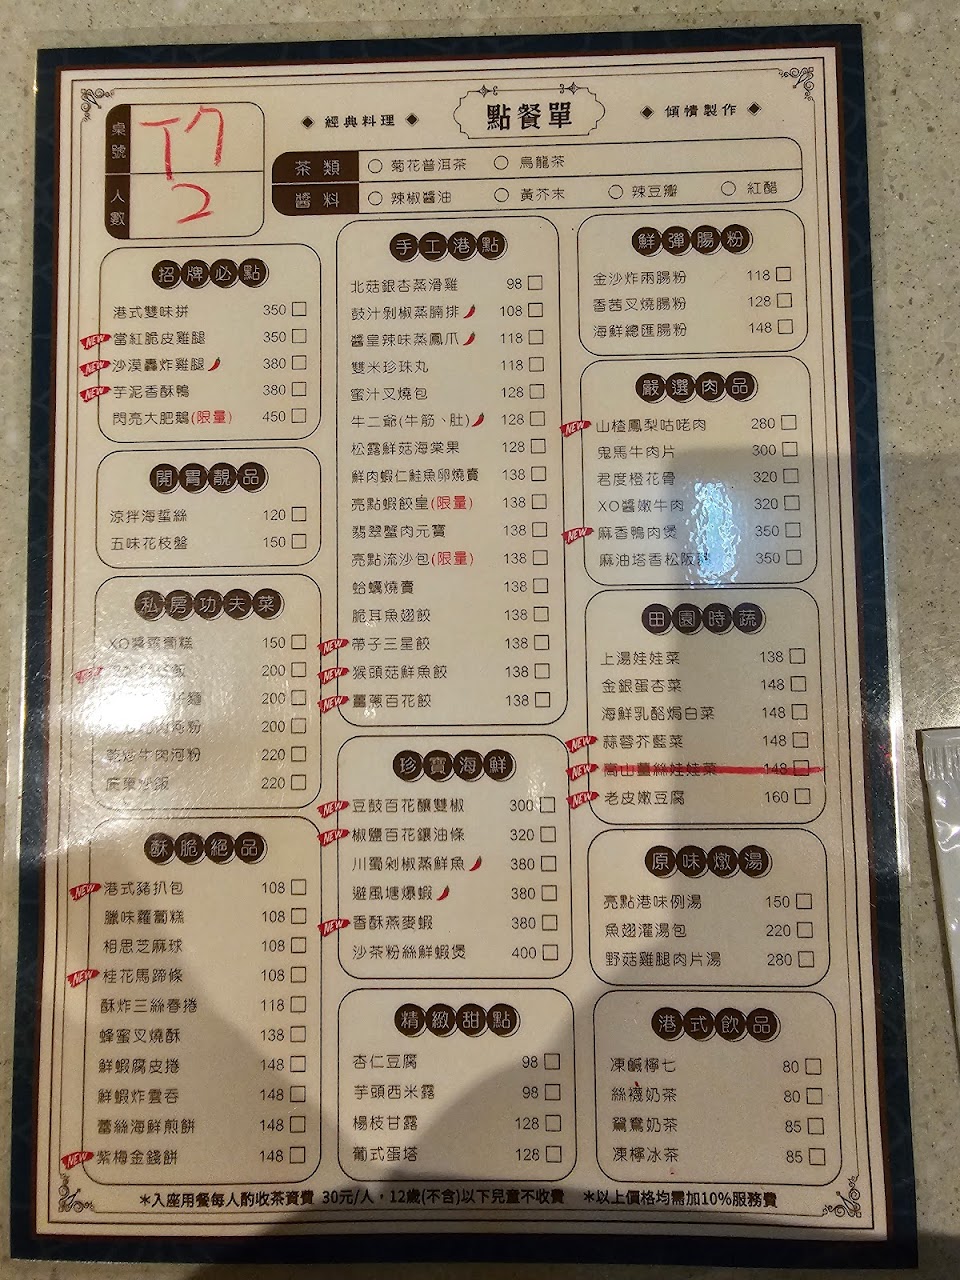 桌號
T7
人數
2
◆ 經典料理 ◆
點餐單
◆ 傾情製作 ◆
茶類 ○ 菊花普洱茶 ○ 烏龍茶
醬料 ○ 辣椒醬油 ○ 黃芥末 ○ 辣豆瓣 ○ 紅醋
招牌必點
港式雙味拼 350 □
NEW 當紅脆皮雞腿 350 □
NEW 沙漠轟炸雞腿 380 □
NEW 芋泥香酥鴨 380 □
閃亮大肥鵝(限量) 450 □
開胃靚品
涼拌海蜇絲 120 □
五味花枝盤 150 □
私房功夫菜
XO醬蘿蔔糕 150 □
NEW 飯 200 □
麵 200 □
河粉 200 □
乾炒牛肉河粉 220 □
廣東炒飯 220 □
酥脆絕品
NEW 港式豬扒包 108 □
臘味蘿蔔糕 108 □
相思芝麻球 108 □
NEW 桂花馬蹄條 108 □
酥炸三絲春捲 118 □
蜂蜜叉燒酥 138 □
鮮蝦腐皮捲 148 □
鮮蝦炸雲吞 148 □
蕾絲海鮮煎餅 148 □
NEW 紫梅金錢餅 148 □
手工港點
北菇銀杏蒸滑雞 98 □
豉汁剁椒蒸腩排 108 □
醬皇辣味蒸鳳爪 118 □
雙米珍珠丸 118 □
蜜汁叉燒包 128 □
牛二爺(牛筋、肚) 128 □
松露鮮菇海棠果 128 □
鮮肉蝦仁鮭魚卵燒賣 138 □
亮點蝦餃皇(限量) 138 □
翡翠蟹肉元寶 138 □
亮點流沙包(限量) 138 □
蛤蠣燒賣 138 □
脆耳魚翅餃 138 □
NEW 帶子三星餃 138 □
NEW 猴頭菇鮮魚餃 138 □
NEW 薑蔥百花餃 138 □
珍寶海鮮
NEW 豆鼓百花釀雙椒 300 □
NEW 椒鹽百花鑲油條 320 □
川蜀剁椒蒸鮮魚 380 □
避風塘爆蝦 380 □
NEW 香酥燕麥蝦 380 □
沙茶粉絲鮮蝦煲 400 □
精緻甜點
杏仁豆腐 98 □
芋頭西米露 98 □
楊枝甘露 128 □
葡式蛋塔 128 □
鮮彈腸粉
金沙炸兩腸粉 118 □
香茜叉燒腸粉 128 □
海鮮總匯腸粉 148 □
嚴選肉品
NEW 山楂鳳梨咕咾肉 280 □
鬼馬牛肉片 300 □
君度橙花骨 320 □
XO醬嫩牛肉 320 □
NEW 麻香鴨肉煲 350 □
麻油塔香松阪 350 □
田園時蔬
上湯娃娃菜 138 □
金銀蛋杏菜 148 □
海鮮乳酪焗白菜 148 □
NEW 蒜蓉芥藍菜 148 □
NEW 高山薑絲娃娃菜 148 □
NEW 老皮嫩豆腐 160 □
原味燉湯
亮點港味例湯 150 □
魚翅灌湯包 220 □
野菇雞腿肉片湯 280 □
港式飲品
凍鹹檸七 80 □
絲襪奶茶 80 □
鴛鴦奶茶 85 □
凍檸冰茶 85 □
＊入座用餐每人酌收茶資費 30元/人，12歲(不含)以下兒童不收費 ＊以上價格均需加10%服務費